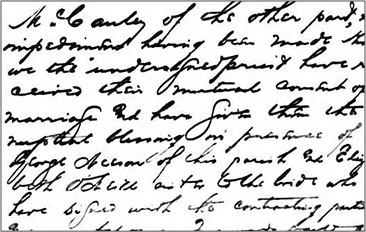 McCauley of the other part,
impediment having been made
we the undersigned priest have re
ceived their mutual consent of
marriage and have given them the
nuptial blessing in presence of
George Neeson of this parish and Eliz
beth O'Neill sister to the bride who
have signed with the contracting